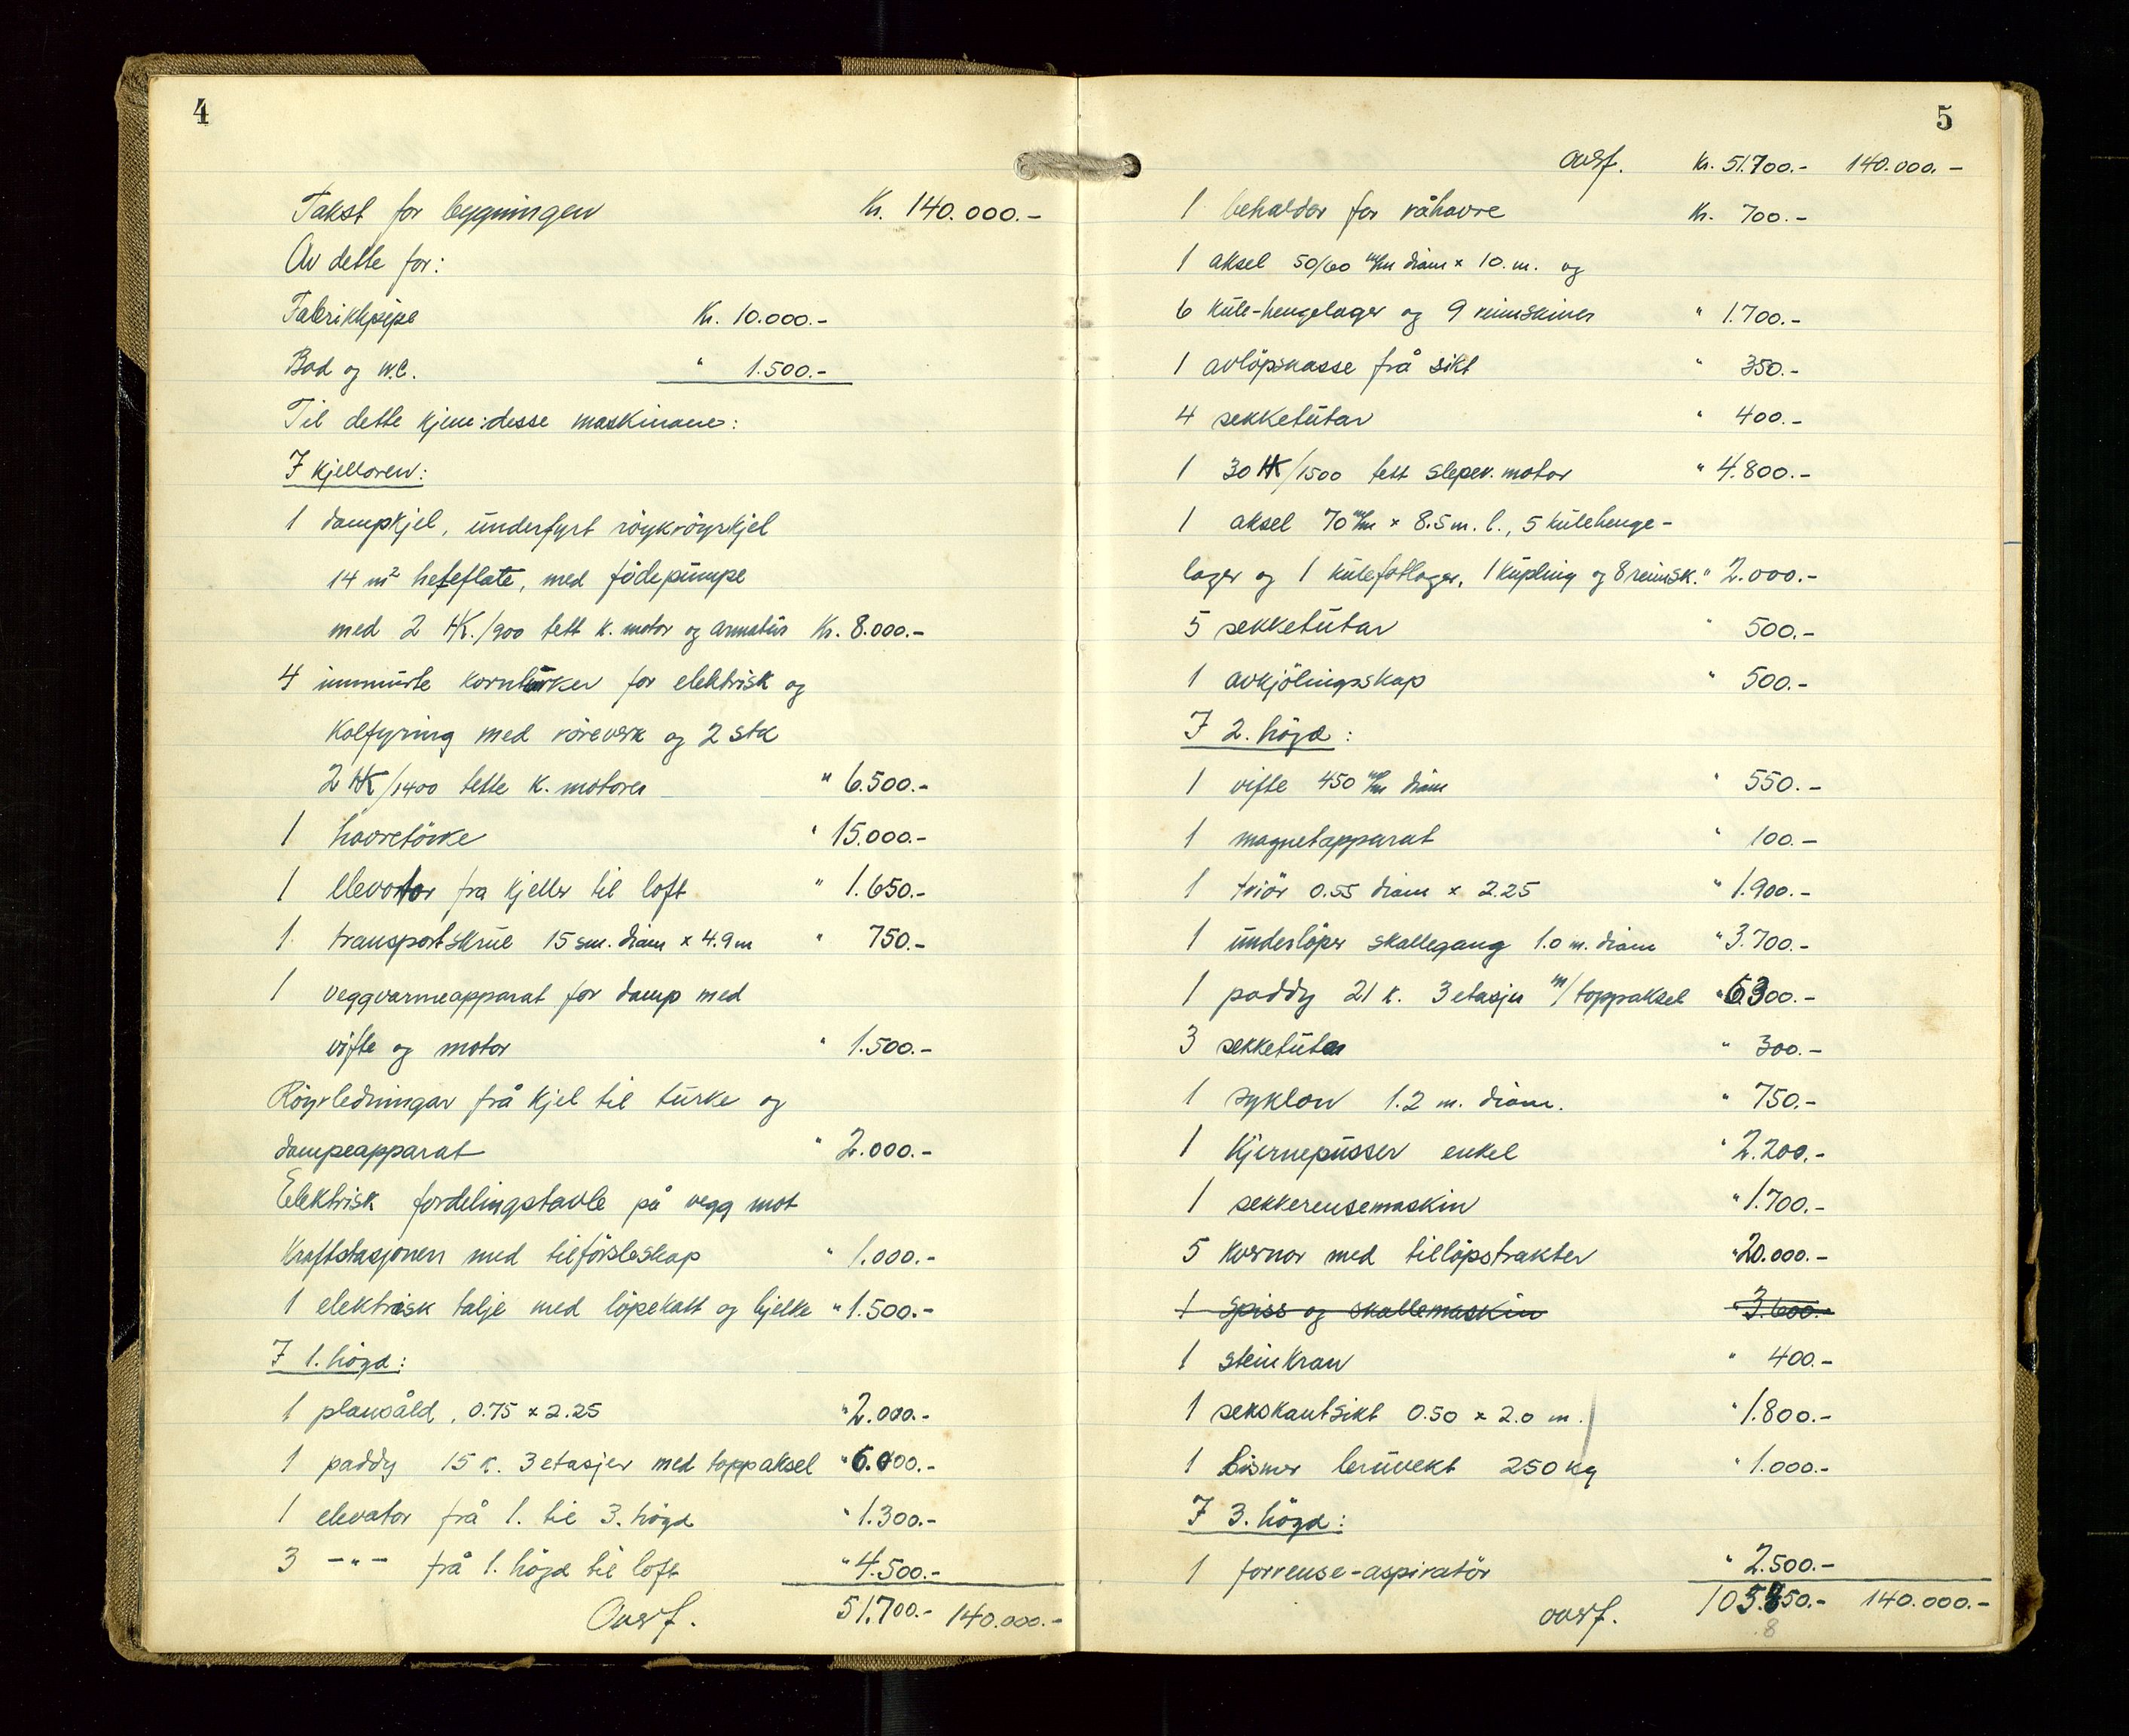 4
Takst for bygningen Kr. 140.000.-
Av dette for:
Fabrikkpipe Kr. 10.000.-
Bad og W.C. " 1.500.-
Til dette kjem desse maskinane:
I kjellaren:
1 dampkjel, underfyrt röykröyrkjel
14 m² heteflate, med födepumpe
med 2 HK./900 tett k. motor og armatur Kr. 8.000.-
4 innmurte korntürker for elektrisk og
Kolfyring med röreverk og 2 stk
2 HK/1400 tette k. motorer " 6.500.-
1 havretörke " 15.000.-
1 elevator fra kjeller til loft " 1.650.-
1 transportskrue 15 sm. diam x 4.9 m " 750.-
1 veggvarmeapparat for damp med
vifte og motor " 1.500.-
Röyrledningar frå kjel til turke og
dampeapparat " 2.000.-
Elektrisk fordelingstavle på vegg mot
Kraftstasjonen med tilförsleskap " 1.000.-
1 elektrisk talje med löpekatt og bjelke " 1.500.-
I 1. högd:
1 plansåld, 0.75 x 2.25 " 2.000.-
1 paddy 15 k. 3 etasjer med toppaksel " 6.000.-
1 elevator frå 1. til 3. högd " 1.300.-
3 -"- frå 1. högd til loft " 4.500.-
Overf. 51.700.- 140.000.-
5
overf. Kr. 51.700.- 140.000.-
1 behaldar for råhavre Kr. 700.-
1 aksel 50/60 m/m diam x 10. m. og
6 kule-hengelager og 9 reimskiver " 1.700.-
1 avlöpskasse frå sikt " 350.-
4 sekketutar " 400.-
1 30 HK/1500 tett sleper. motor " 4.800.-
1 aksel 70 m/m x 8.5 m. l., 5 kulehenge-
lager og 1 kulefotlager, 1 kupling og 8 reimsk. " 2.000.-
5 sekketutar " 500.-
1 avkjölingsskap " 500.-
I 2. högd:
1 vifte 450 m/m diam " 550.-
1 magnetapparat " 100.-
1 triör 0.55 diam x 2.25 " 1.900.-
1 underlöper skallegang 1.0 m. diam " 3.700.-
1 paddy 21 k. 3 etasjer m/toppaksel " 6.300.-
3 sekketutar " 300.-
1 syklon 1.2 m. diam. " 750.-
1 Kjernepusser enkel " 2.200.-
1 sekkerensemaskin " 1.700.-
5 kverner med tillöpstrakter " 20.000.-
1 spiss og skallemaskin " 3.600.-
1 steinkran " 400.-
1 sekskantsikt 0.50 x 2.0 m. " 1.800.-
1 Bismer bruvekt 250 kg " 1.000.-
I 3. högd:
1 forrense-aspiratör " 2.500.-
overf. 105.850.- 140.000.-
8